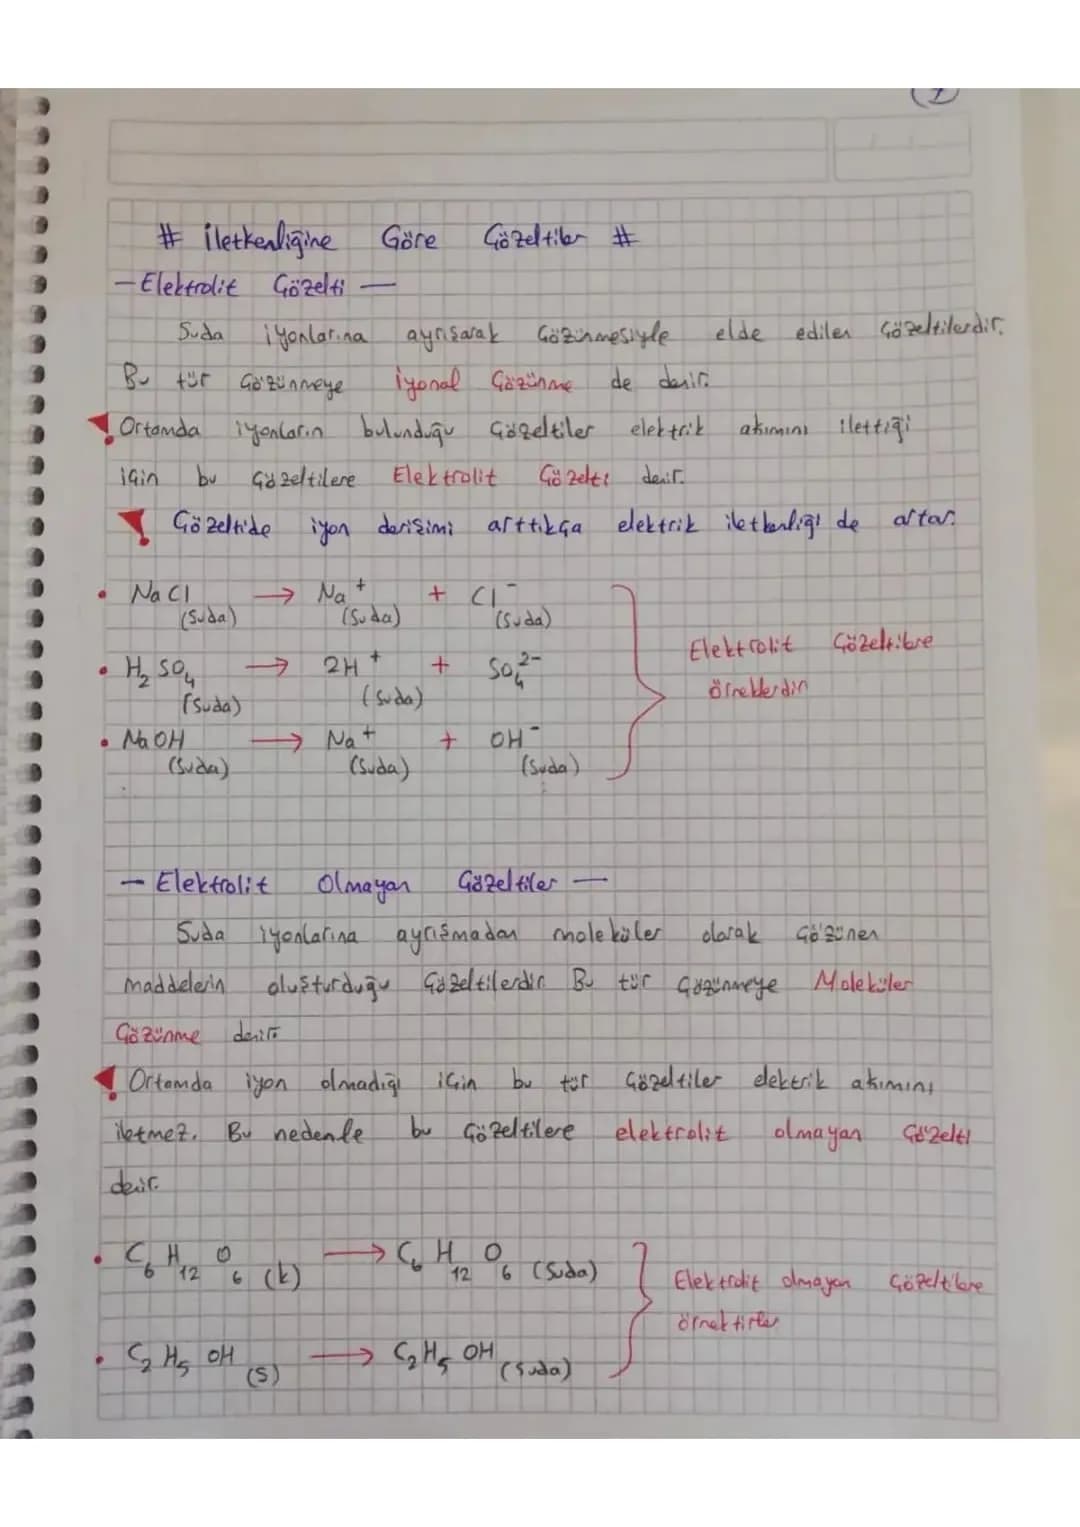 7
# İletkenliğine Göre Çözeltiler #
— Elektrolit Çözelti —
Suda iyonlarına ayrışarak çözünmesiyle elde edilen çözeltilerdir.
Bu tür çözünmeye iyonal çözünme de denir.
! Ortamda iyonların bulunduğu çözeltiler elektrik akımını ilettiği
için bu çözeltilere Elektrolit Çözelti denir.
! Çözeltide iyon derişimi arttıkça elektrik iletkenliği de artar.
• NaCl (Suda) → Na⁺ (Suda) + Cl⁻ (Suda)
• H₂SO₄ (Suda) → 2H⁺ (Suda) + SO₄²⁻
• NaOH (Suda) → Na⁺ (Suda) + OH⁻ (Suda)
Elektrolit Çözeltilere
örneklerdir
— Elektrolit Olmayan Çözeltiler —
Suda iyonlarına ayrışmadan moleküler olarak çözünen
maddelerin oluşturduğu çözeltilerdir. Bu tür çözünmeye Moleküler
Çözünme denir.
! Ortamda iyon olmadığı için bu tür çözeltiler elektrik akımını
iletmez. Bu nedenle bu çözeltilere elektrolit olmayan çözelti
denir.
• C₆H₁₂O₆ (k) → C₆H₁₂O₆ (Suda)
• C₂H₅OH (s) → C₂H₅OH (Suda)
Elektrolit olmayan çözeltilere
örnektirler